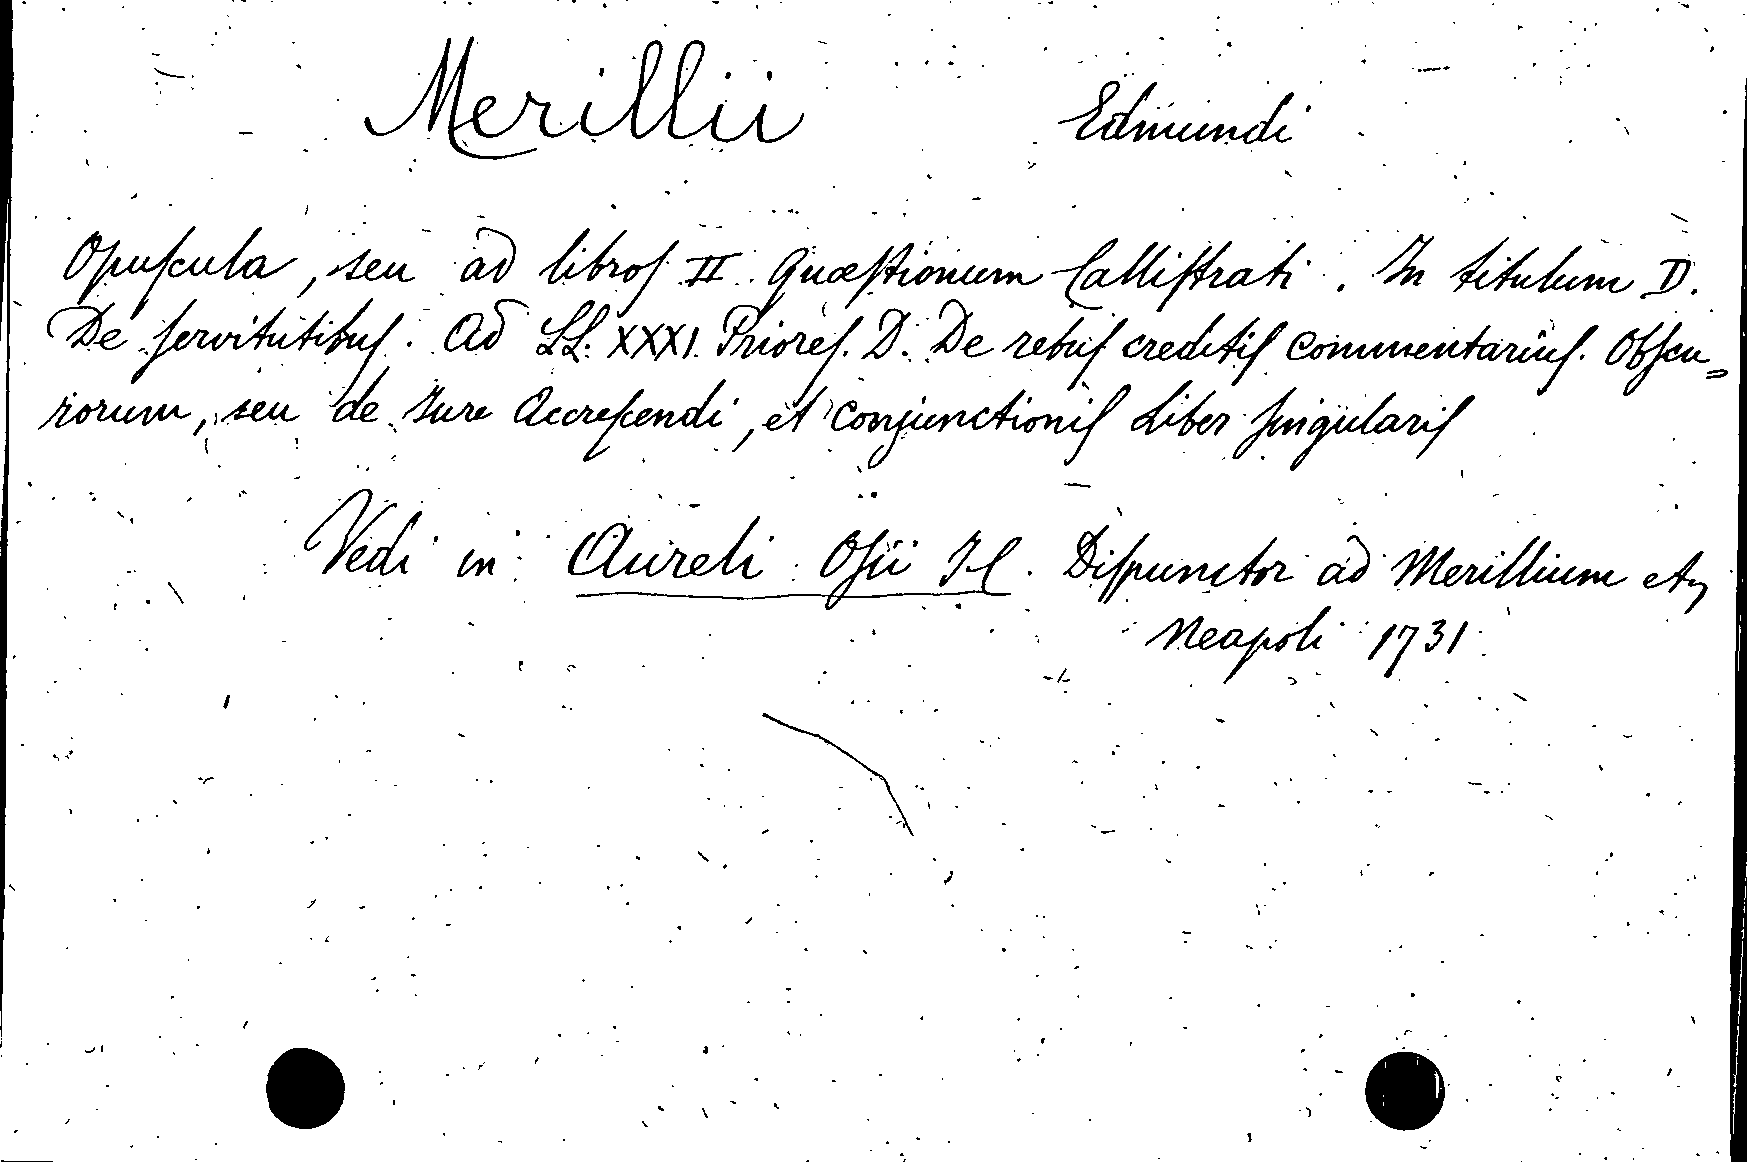 Merillii Edmundi
Opuſcula, seu ad libroſ II. Quæſtionum Calliſtrati. In titulum D.
De ſervitutibuſ. Ad LL. XXXI. Prioreſ. D. De rebuſ creditiſ commentariuſ. Obſcu=
rorum, seu de Iure Accreſcendi, et conjunctioniſ Liber ſingulariſ
Vedi in Aureli Oſii Diſpunctor ad Merillium
Neapoli 1731